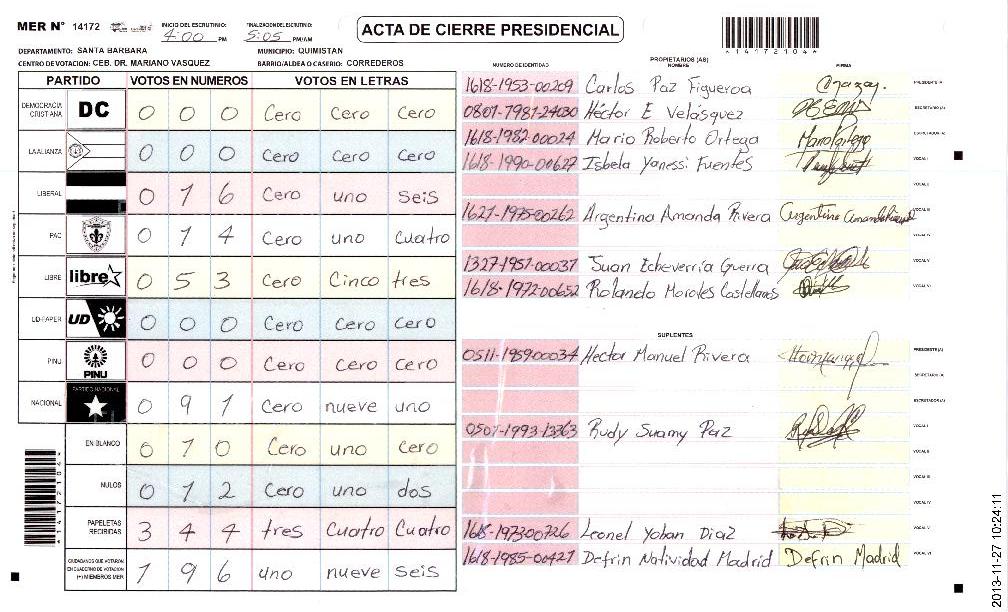 MER N° 14172
INICIO DEL ESCRUTINIO: 4:00 PM
FINALIZACION DEL ESCRUTINIO: 5:05 PM/AM
ACTA DE CIERRE PRESIDENCIAL
4 1 4 1 7 2 1 0 4
DEPARTAMENTO: SANTA BARBARA
MUNICIPIO: QUIMISTAN
CENTRO DE VOTACION: CEB. DR. MARIANO VASQUEZ
BARRIO/ALDEA O CASERIO: CORREDEROS
PARTIDO VOTOS EN NUMEROS VOTOS EN LETRAS
DEMOCRACIA CRISTIANA DC 0 0 0 Cero Cero Cero
LA ALIANZA 0 0 0 Cero Cero Cero
LIBERAL 0 1 6 Cero uno Seis
PAC 0 1 4 Cero uno Cuatro
LIBRE libre 0 5 3 Cero Cinco tres
UD-FAPER UD 0 0 0 Cero Cero Cero
PINU PINU 0 0 0 Cero Cero Cero
NACIONAL PARTIDO NACIONAL 0 9 1 Cero nueve uno
EN BLANCO 0 1 0 Cero uno Cero
NULOS 0 1 2 Cero uno dos
PAPELETAS RECIBIDAS 3 4 4 tres Cuatro Cuatro
CIUDADANOS QUE VOTARON EN CUADERNO DE VOTACION (+) MIEMBROS MER 1 9 6 uno nueve Seis
NUMERO DE IDENTIDAD PROPIETARIOS (AS) NOMBRE FIRMA
1618-1953-00269 Carlos Paz Figueroa PRESIDENTE (A)
0801-7981-24030 Héctor E Velásquez SECRETARIO (A)
1618-1982-00024 Mario Roberto Ortega ESCRUTADOR (A)
1618-1990-00627 Isbela Yanessi Fuentes VOCAL I
VOCAL II
1627-1975-00262 Argentina Amanda Rivera VOCAL III
VOCAL IV
1327-1957-00037 Juan Echeverría Guerra VOCAL V
1618-1972-00652 Rolando Morales Castellanos VOCAL VI
SUPLENTES
0511-1959-00034 Hector Manuel Rivera PRESIDENTE (A)
SECRETARIO (A)
ESCRUTADOR (A)
0507-1993-13363 Rudy Suamy Paz VOCAL I
VOCAL II
VOCAL III
VOCAL IV
1618-1973-00726 Leonel Yoban Diaz VOCAL V
1618-1985-00427 Defrin Natividad Madrid Defrin Madrid VOCAL VI
2013-11-27 10:24:11